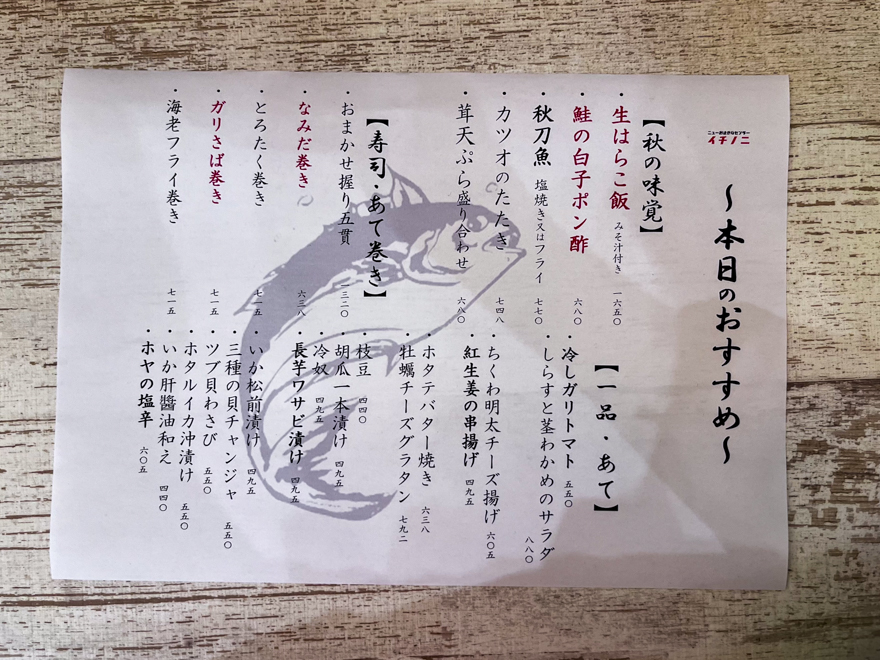 ニューおはかなセンター
イチノニ
〜本日のおすすめ〜
【秋の味覚】
・生はらこ飯 みそ汁付き 一六五〇
・鮭の白子ポン酢 六八〇
・秋刀魚 塩焼き又はフライ 七七〇
・カツオのたたき 七四八
・茸天ぷら盛り合わせ 六八〇
【寿司・あて巻き】
・おまかせ握り五貫 一三二〇
・なみだ巻き 六三八
・とろたく巻き 七一五
・ガリさば巻き 七一五
・海老フライ巻き 七一五
【一品・あて】
・冷しガリトマト 五五〇
・しらすと茎わかめのサラダ 八八〇
・ちくわ明太チーズ揚げ 六〇五
・紅生姜の串揚げ 四九五
・ホタテバター焼き 六三八
・牡蠣チーズグラタン 七九二
・枝豆 四四〇
・胡瓜一本漬け 四九五
・冷奴 四九五
・長芋ワサビ漬け 四九五
・いか松前漬け 四九五
・三種の貝チャンジャ 五五〇
・ツブ貝わさび 五五〇
・ホタルイカ沖漬け 五五〇
・いか肝醬油和え 四四〇
・ホヤの塩辛 六〇五